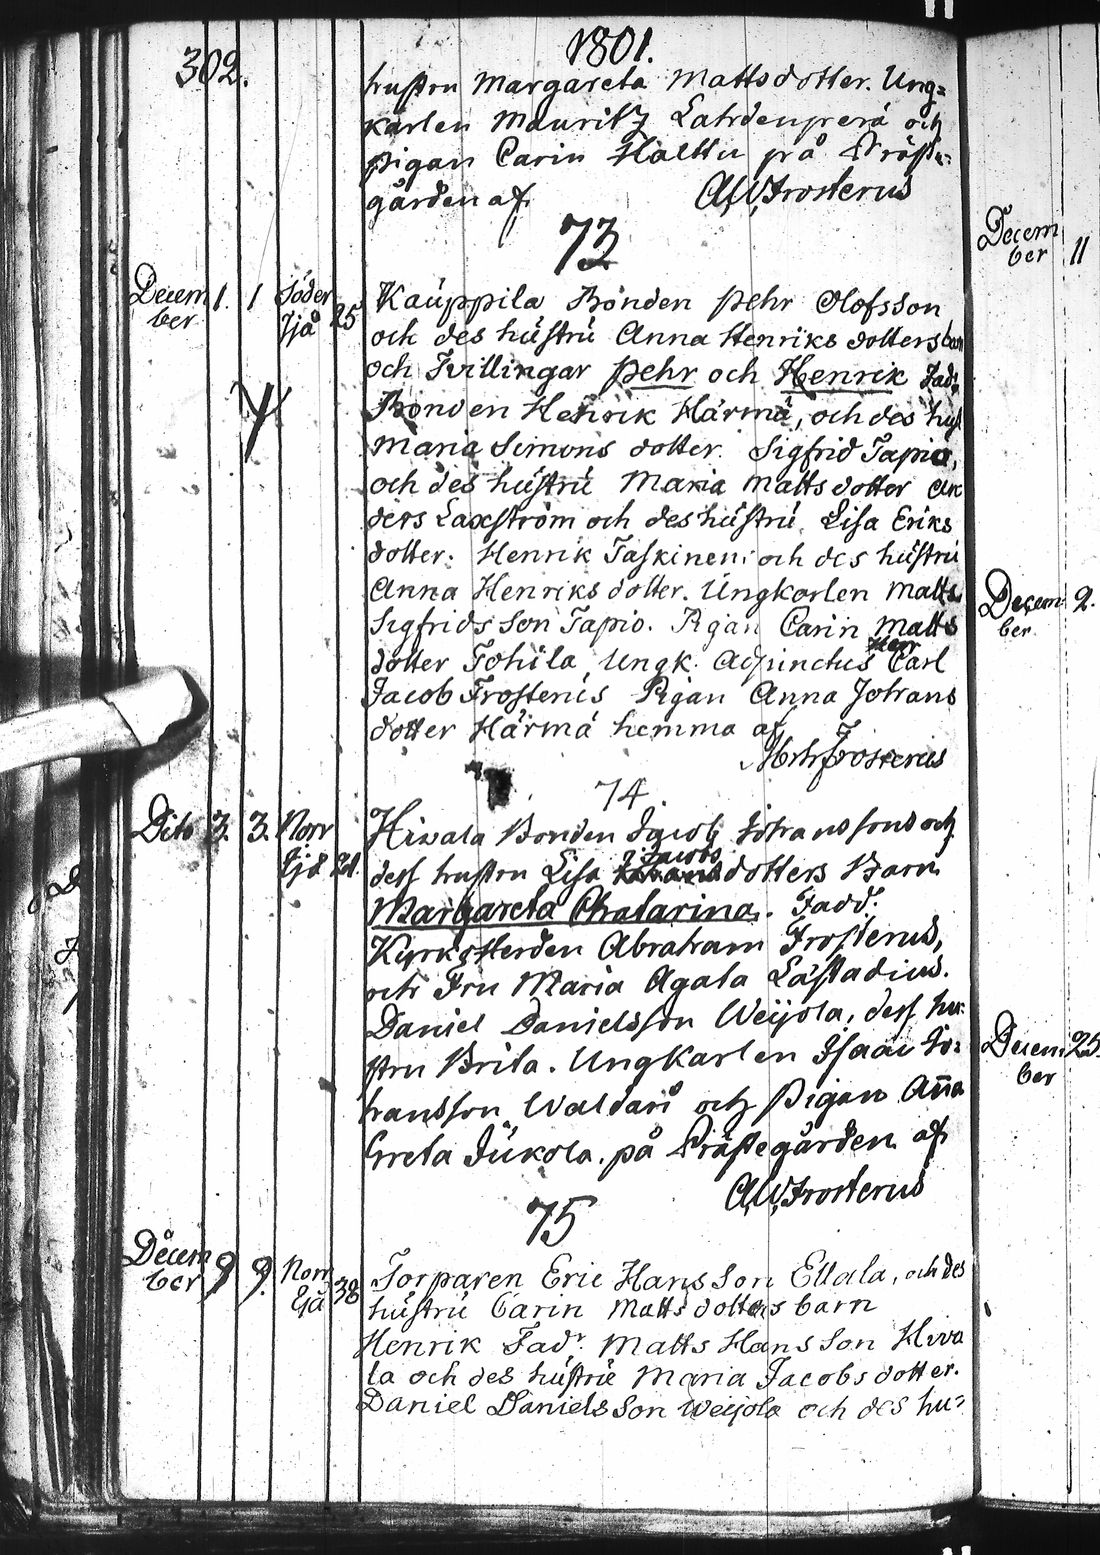 302.
1801.
hustru Margareta Mattsdotter. Ung=
karlen Mauritz Lahdenperä och
pigan Carin Halttu på Präste=
gården af
A,W,Frosterus
73
Decem
ber
1. 1
Söder
Ijå
25
Kauppila Bonden Pehr Olofsson
och des hustru Anna Henriks dotters barn
och Tvillingar Pehr och Henrik Fadr
Bonden Henrik Härmä, och des hust
Maria Simons dotter. Sigfrid Tapio,
och des hustru Maria Matts dotter An
ders Laxström och des hustru Lisa Eriks
dotter. Henrik Taskinen: och des hustru
Anna Henriks dotter. Ungkarlen Matts
Sigfrids Son Tapio. Pigan Carin Matts
Herr
dotter Tohila, Ungk. Adjunctus Carl
Jacob Frosterus Pigan Anna Johans
dotter Härmä hemma af
Frosterus
74
Dito 3. 3.
Norr
Ijå
21.
Hivala Bonden Jacob Johanssons och
Jacobs
dess hustru Lisa dotters Barn
Margareta Chatarina. Fadd:
KyrkoHerden Abraham Frosterus,
och Fru Maria Agata Lästadius.
Daniel Danielsson Weijola, dess hu=
stru Brita. Ungkarlen Isaac Jo=
hansson Waldari och Pigan Anna
Greta Jukola. på Prästegården af
A,W,Frosterus
75
Decem
ber
9 9.
Norr
Ijå
38
Torparen Eric Hans Son Ellala, och des
hustru Carin Matts dotters barn
Henrik Fadr. Matts Hans Son Hiva
la och des hustru Maria Jacobs dotter.
Daniel Daniels Son Weijola och des hu=
Decem
ber
11
Decem
ber
2.
Decem
ber
25